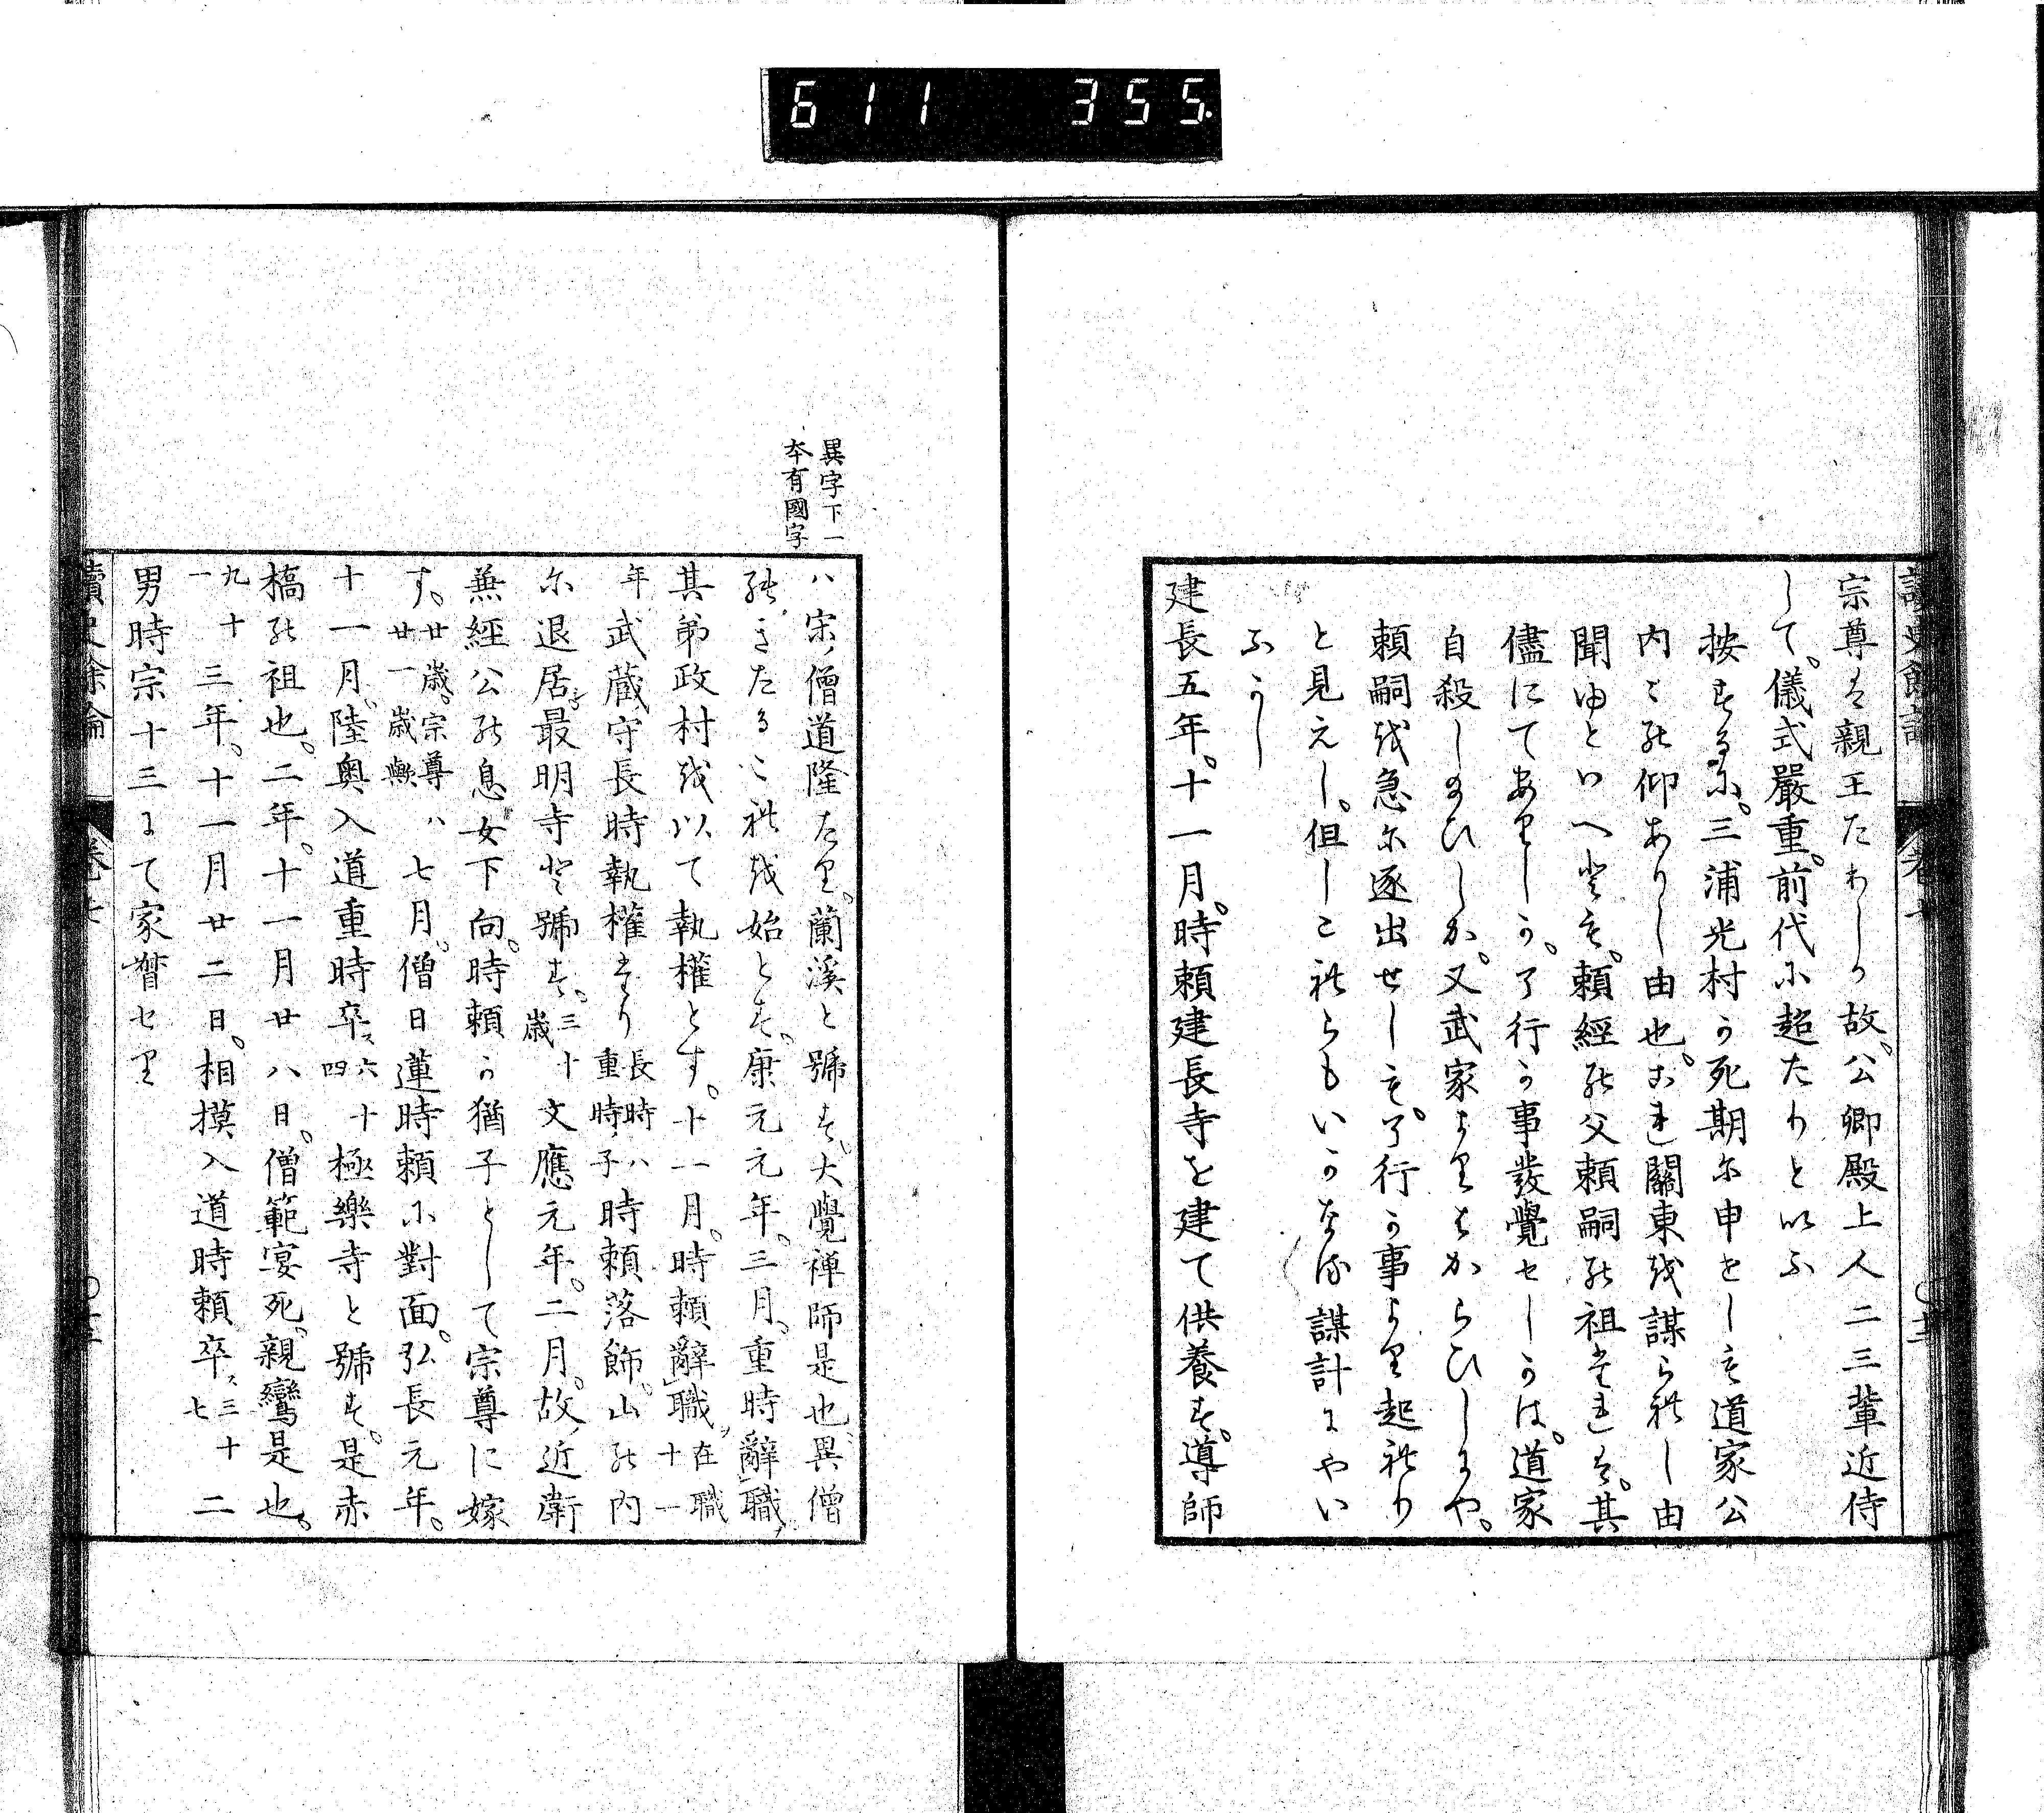 611 355
宗尊は親王たりし故。公卿殿上人二三輩近侍
して。儀式嚴重。前代に超たりといふ
按するに。三浦光村か死期に申せしも道家公
内々の仰ありし由也。これ關東を謀られし由
聞ゆといへとも。頼經の父頼嗣の祖なれは。其
儘にてありしか。了行か事發覺せしかは。道家
自殺し給ひしか。又武家よりはからひしにや。
頼嗣を急に逐出せしも。了行か事より起れり
と見えし。但しこれらもいかなる謀計にやい
ふかし
建長五年。十一月。時頼建長寺を建て供養す。導師
異字下一
本有國字
ハ宋ノ僧道隆なり。蘭溪と號す。大覺禪師是也。異僧
の。きたるこれを始とす。康元元年。三月。重時辭職。
其弟政村を以て執權とす。十一月。時頼辭職。在職十一
年武藏守長時執權たり長時ハ重時ノ子時頼落飾。山の内
に退居。最明寺と號す。三十歳文應元年。二月。故近衛
兼經公の息女下向。時頼か猶子として宗尊に嫁
す。廿歳。宗尊ハ廿一歳歟七月。僧日蓮時頼に對面。弘長元年。
十一月。陸奥入道重時卒ス六十四極樂寺と號す。是赤
橋の祖也。二年。十一月廿八日。僧範宴死。親鸞是也。
九十一三年。十一月廿二日。相摸入道時頼卒ス三十七二
男時宗十三にて家督せり
讀史餘論 卷七